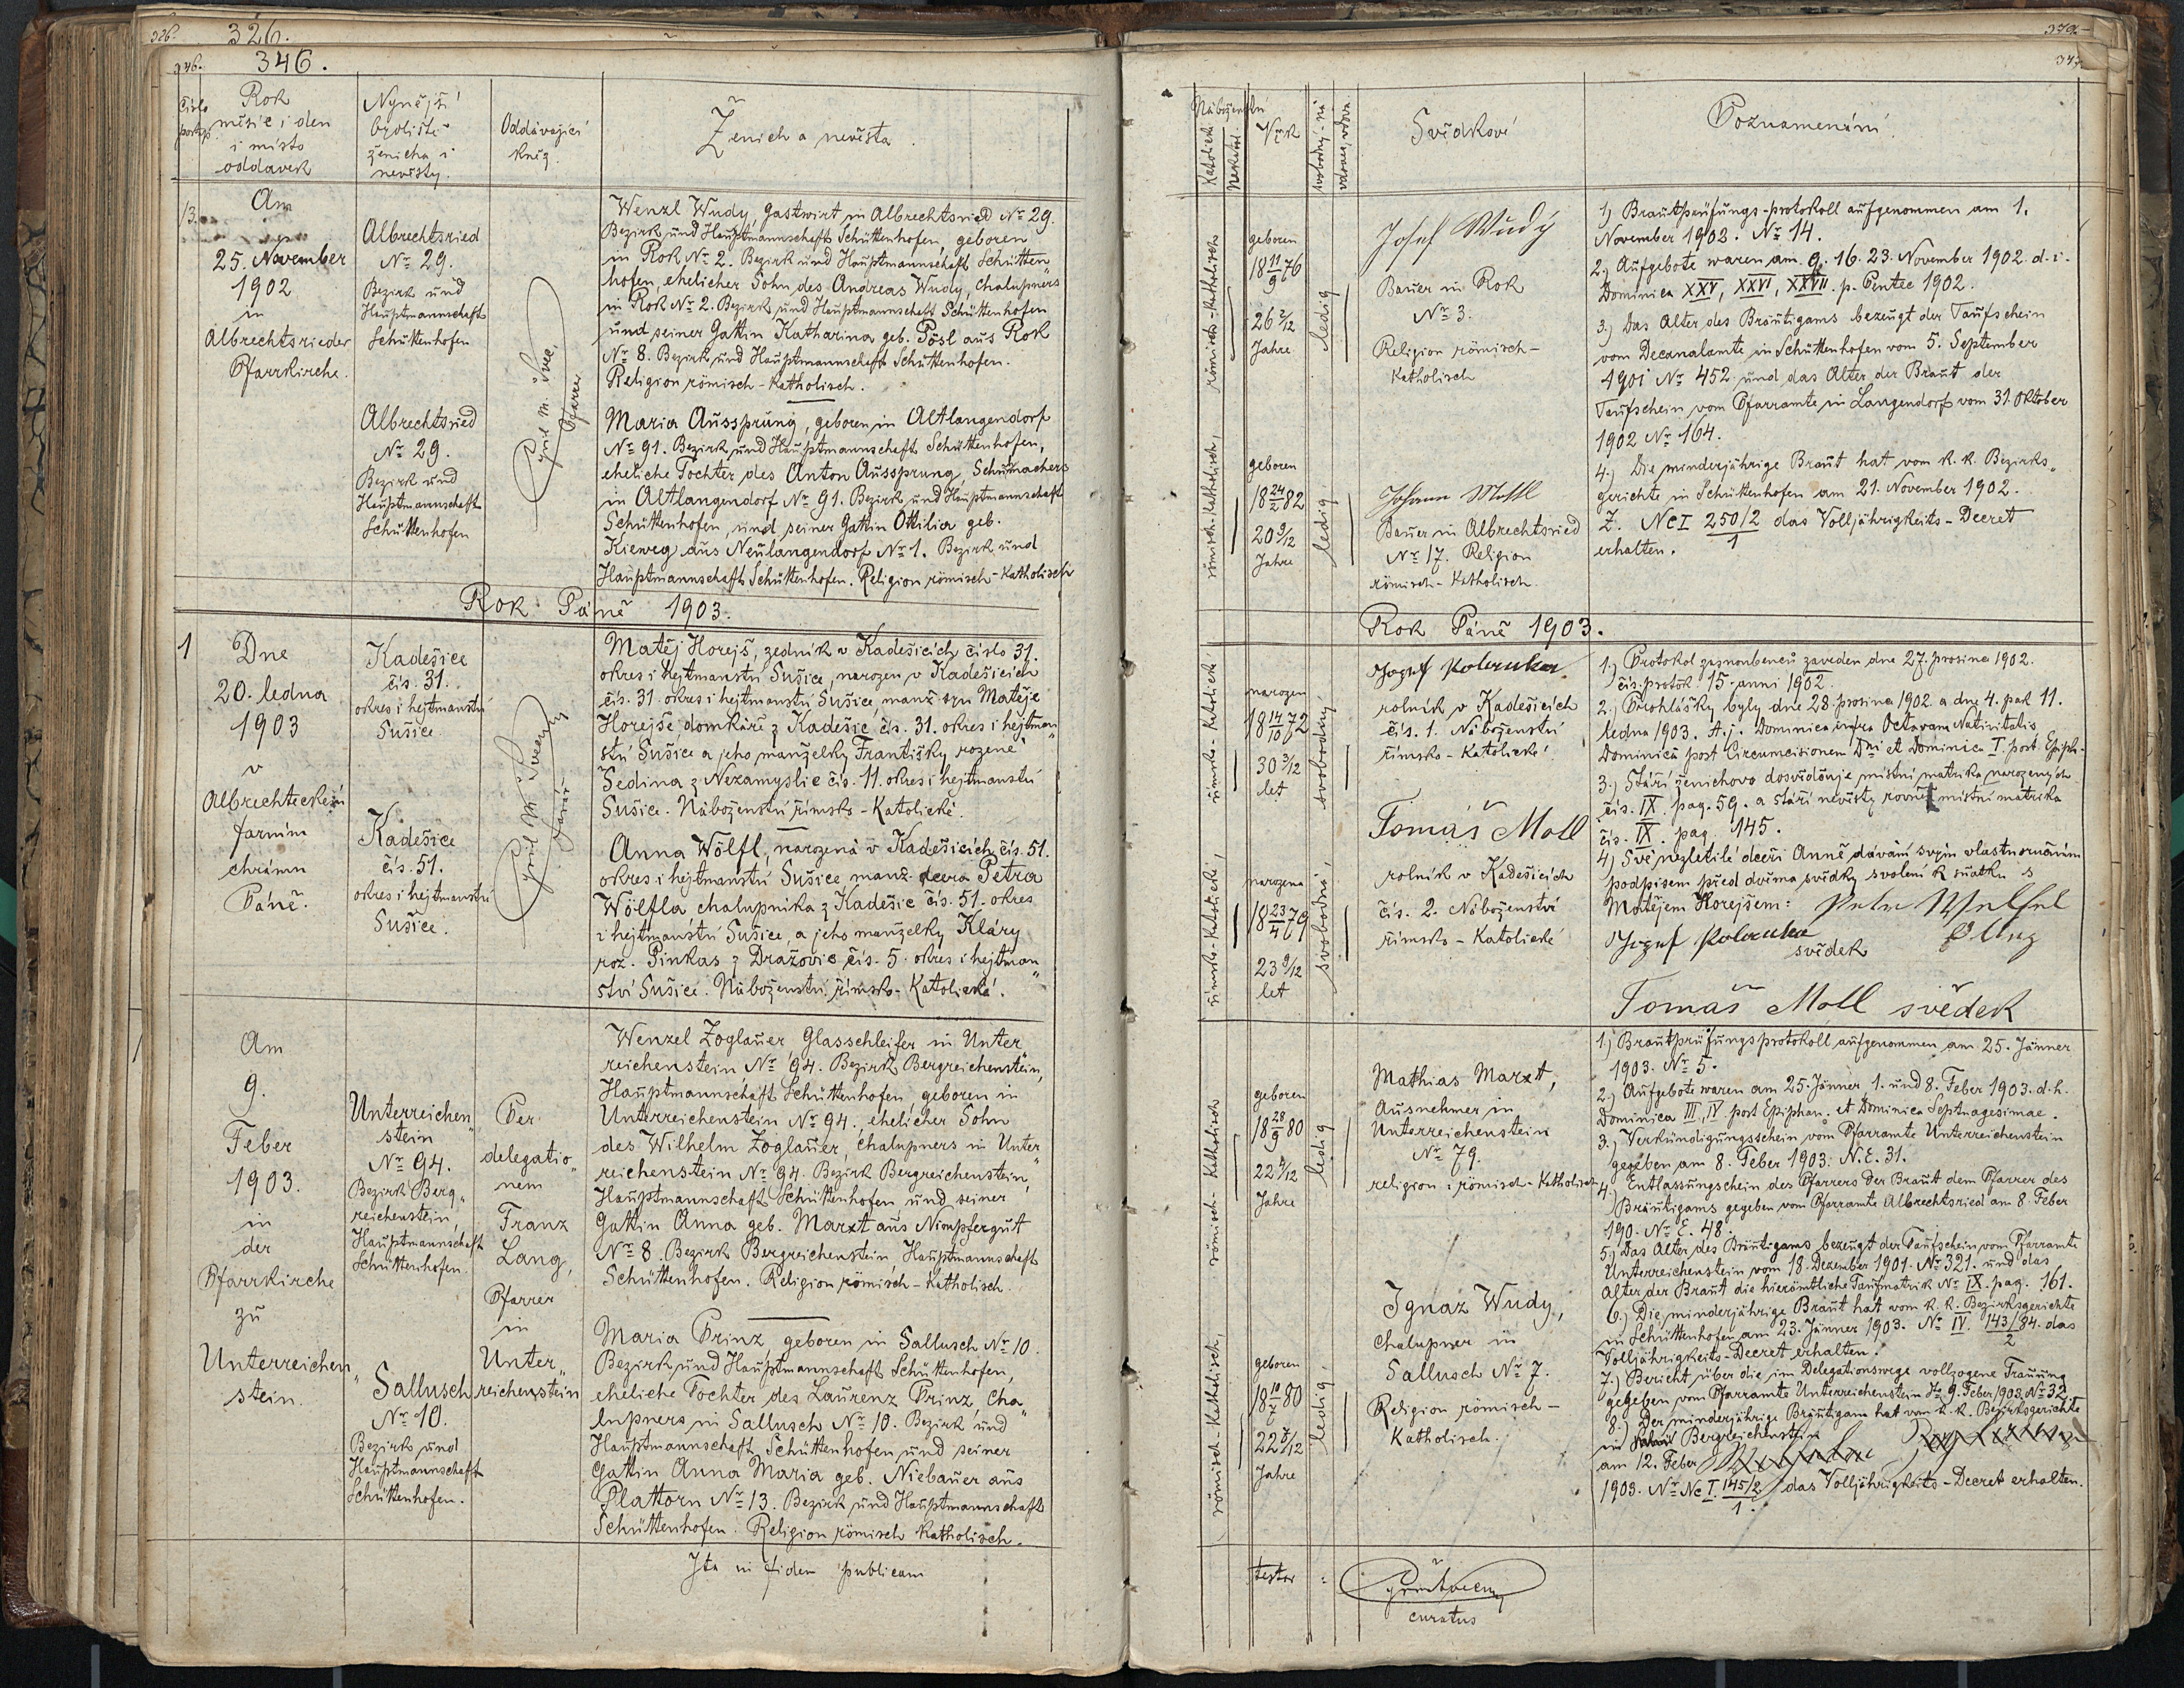 326.
326.
346.
346.
číslo
postup.
Rok
měsíc i den
i místo
oddavek
Nynější
bydliště
ženicha i
nevěsty.
Oddávající
kněz.
Ženich a nevěsta.
13.
Am
25. November
1902
in
Albrechtsrieder
Pfarrkirche.
Albrechtsried
Nr 29.
Bezirk und
Hauptmannschaft
Schüttenhofen
Albrechtsried
Nr 29.
Bezirk und
Hauptmannschaft
Schüttenhofen
Cyril M.
Pfarrer
Wenzl Wudy, Gastwirt in Albrechtsried Nr 29.
Bezirk und Hauptmannschaft Schüttenhofen, geboren
in Rok Nr 2. Bezirk und Hauptmannschaft Schütten„
hofen, ehelicher Sohn des Andreas Wudy, Chalupners
in Rok Nr 2. Bezirk und Hauptmannschaft Schüttenhofen
und seiner Gattin Katharina geb. Pösl aus Rok
Nr 8. Bezirk und Hauptmannschaft Schüttenhofen.
Religion römisch-katholisch.
Maria Aussprung, geboren in Altlangendorf
Nr 91. Bezirk und Hauptmannschaft Schüttenhofen,
eheliche Tochter des Anton Aussprung, Schumachers
in Altlangendorf Nr 91. Bezirk und Hauptmannschaft
Schüttenhofen, und seiner Gattin Ottilia geb.
Kieweg aus Neulangendorf Nr 1. Bezirk und
Hauptmannschaft Schüttenhofen. Religion römisch-katholisch
Rok Páně 1903.
1
Dne
20. ledna
1903
v
Albrechteckém
farním
chrámu
Páně.
Kadešice
čís. 31.
okres i hejtmanství
Sušice
Kadešice
čís. 51.
okres i hejtmanství
Sušice.
Cyril M.
farář
Matěj Horejš, zedník v Kadešicích číslo 31.
okres i hejtmanství Sušice, narozen v Kadešicích
čís. 31. okres i hejtmanství Sušice, manž. syn Matěje
Horejše, domkáře z Kadešic čís. 31. okres i hejtman„
ství Sušice a jeho manželky Františky rozené
Šedina z Nezamyslic čís. 11. okres i hejtmanství
Sušice. Náboženství římsko-katolické.
Anna Wölfl, narozená v Kadešicích čís. 51.
okres i hejtmanství Sušice manž. dcera Petra
Wölfla chalupníka z Kadešic čís. 51. okres
i hejtmanství Sušice, a jeho manželky Kláry
roz. Pinkas z Dražovic čís. 5. okres i hejtman„
ství Sušice. Náboženství římsko-katolické.
Am
9.
Feber
1903.
in
der
Pfarrkirche
zu
Unterreichen„
stein.
Unterreichen„
stein
Nr 94.
Bezirk Berg„
reichenstein,
Hauptmannschaft
Schüttenhofen.
Sallusch
Nr 10.
Bezirk und
Hauptmannschaft
Schüttenhofen.
Per
delegatio„
nem
Franz
Lang,
Pfarrer
in
Unter„
reichenstein
Wenzel Zoglauer, Glasschleifer in Unter„
reichenstein Nr 94. Bezirk Bergreichenstein,
Hauptmannschaft Schüttenhofen, geboren in
Unterreichenstein Nr 94., ehelicher Sohn
des Wilhelm Zoglauer, Chalupners in Unter„
reichenstein Nr 94. Bezirk Bergreichenstein,
Hauptmannschaft Schüttenhofen und seiner
Gattin Anna geb. Marxt aus Nimpfergut
Nr 8. Bezirk Bergreichenstein Hauptmannschaft
Schüttenhofen. Religion römisch-katholisch.
Maria Prinz, geboren in Sallusch Nr 10.
Bezirk und Hauptmannschaft Schüttenhofen,
eheliche Tochter des Laurenz Prinz, Cha„
lupners in Sallusch Nr 10. Bezirk und
Hauptmannschaft Schüttenhofen, und seiner
Gattin Anna Maria geb. Niebauer aus
Plattorn Nr 13. Bezirk und Hauptmannschaft
Schüttenhofen. Religion römisch katholisch.
Ita in fidem publicam
Náboženství
Katolické
Nekatol.
Věk
svobodný-ná
vdovec, vdova.
Svědkové
Poznamenání.
römisch-katholisch
geboren
18 11/9 76
26 2/12
Jahre
ledig
Josef Wudy
Bauer in Rok
Nr 3.
Religion römisch-
katholisch
römisch-katholisch,
geboren
18 24/2 82
20 9/12
Jahre
ledig
Johann
Bauer in Albrechtsried
Nr 17. Religion
römisch-katholisch.
1.) Brautprüfungs-protokoll aufgenommen am 1.
November 1902. Nr 14.
2.) Aufgebote waren am 9. 16. 23. November 1902. d. i.
Dominica XXV, XXVI, XXVII. p. Pentec 1902.
3.) Das Alter des Bräutigams bezeugt der Taufschein
vom Decanalamte in Schüttenhofen vom 5. September
1901 Nr 452 und das Alter der Braut der
Taufschein vom Pfarramte in Langendorf vom 31. Oktober
1902 Nr 164.
4.) Die minderjährige Braut hat vom k. k. Bezirks„
gerichte in Schüttenhofen am 21. November 1902.
Z. Nc I 250/2 das Volljährigkeits-Decret
1
erhalten.
Rok Páně 1903.
římsko-katolické
narozen
18 14/10 72
30 3/12
let
svobodný
Jozef Polauka
rolník v Kadešicích
čís. 1. Náboženství
římsko-katolické
římsko-katolické,
narozena
18 23/4 79
23 9/12
let
svobodná,
Tomáš Moll
rolník v Kadešicích
čís. 2. Náboženství
římsko-katolické
1.) Protokol zasnoubenců zaveden dne 27. prosince 1902.
čís. protok. 15. anni 1902.
2.) Prohlášky byly dne 28. prosince 1902. a dne 4. pak 11.
ledna 1903. t. j. Dominica infra Octavam Nativitatis
Dominica post Circumcisionem Dni et Dominica I. post Epiph.
3.) Stáří ženichovo dosvědčuje místní matrika narozených
čís. IX pag. 59. a stáří nevěsty rovněž místní matrika
čís. IX. pag. 145.
4.) Své nezletilé dceři Anně dávám svým vlastnoručním
podpisem před dvěma svědky svolení k sňatku s
Matějem Horejšem: Petr Welfel
Jozef Polauka
svědek
Tomáš Moll svědek
römisch-katholisch
geboren
18 28/9 80
22 4/12
Jahre
ledig
Mathias Marxt,
Ausnehmer in
Unterreichenstein
Nr 79.
religion: römisch-katholisch
römisch-katholisch,
geboren
22 7/12
Jahre
ledig,
Ignaz Wudy,
Chalupner in
Sallusch Nr 7.
Religion römisch-
katholisch.
1.) Brautprüfungsprotokoll aufgenommen am 25. Jänner
1903. Nr 5.
2.) Aufgebote waren am 25. Jänner 1. und 8. Feber 1903. d. h.
Dominica III, IV post Epiphan. et Dominica Septuagesimae.
3.) Verkündigungsschein vom Pfarramte Unterreichenstein
gegeben am 8. Feber 1903. N. E. 31.
4.) Entlassungschein des Pfarrers der Braut dem Pfarrer des
Bräutigams gegeben vom Pfarramte Albrechtsried am 8. Feber
190. Nr E. 48.
5.) Das Alter des Bräutigams bezeugt der Taufschein vom Pfarramte
Unterreichenstein vom 18. Dezember 1901. Nr 321. und das
Alter der Braut die hierämtliche Taufmatrik Nr IX. pag. 161.
6.) Die minderjährige Braut hat vom k. k. Bezirksgerichte
in Schüttenhofen am 23. Jänner 1903. Nr IV. 143/84. das
2
Volljährigkeits-Decret erhalten.
7.) Bericht über die im Delegationswege vollzogene Trauung
gegeben vom Pfarramte Unterreichenstein 9. Feber 1903. Nr 32.
8.) Der minderjährige Bräutigam hat vom k. k. Bezirksgerichte
in Bergreichenstein
am 12. Feber
1903. Nr Nc I. 145/2 das Volljährigkeits-Decret erhalten.
1.
testor:
curatus